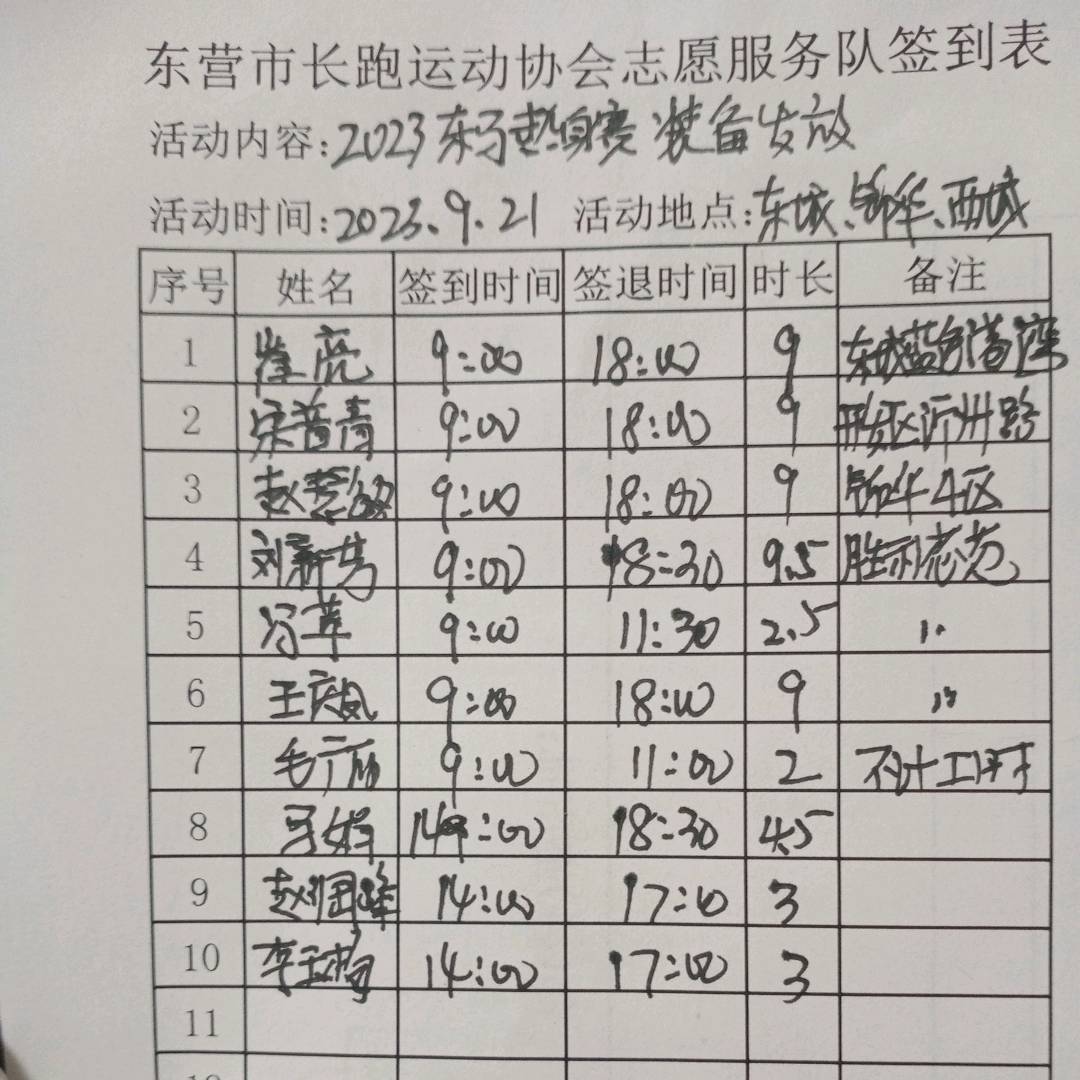 东营市长跑运动协会志愿服务队签到表
活动内容:2023东马热身赛 装备发放
活动时间:2023.9.21 活动地点:东城、锦华、西城
序号 姓名 签到时间 签退时间 时长 备注
1 崔亮 9:00 18:00 9 东城蓝色港湾
2 宋普青 9:00 18:00 9 沂州路
3 赵慧敏 9:00 18:00 9 锦华4区
4 刘新芳 9:00 18:30 9.5 胜利
5 冯苹 9:00 11:30 2.5 〃
6 王庆凤 9:00 18:00 9 〃
7 毛广 9:00 11:00 2 不计工时
8 14:00 18:30 4.5
9 赵国峰 14:00 17:00 3
10 李玉梅 14:00 17:00 3
11